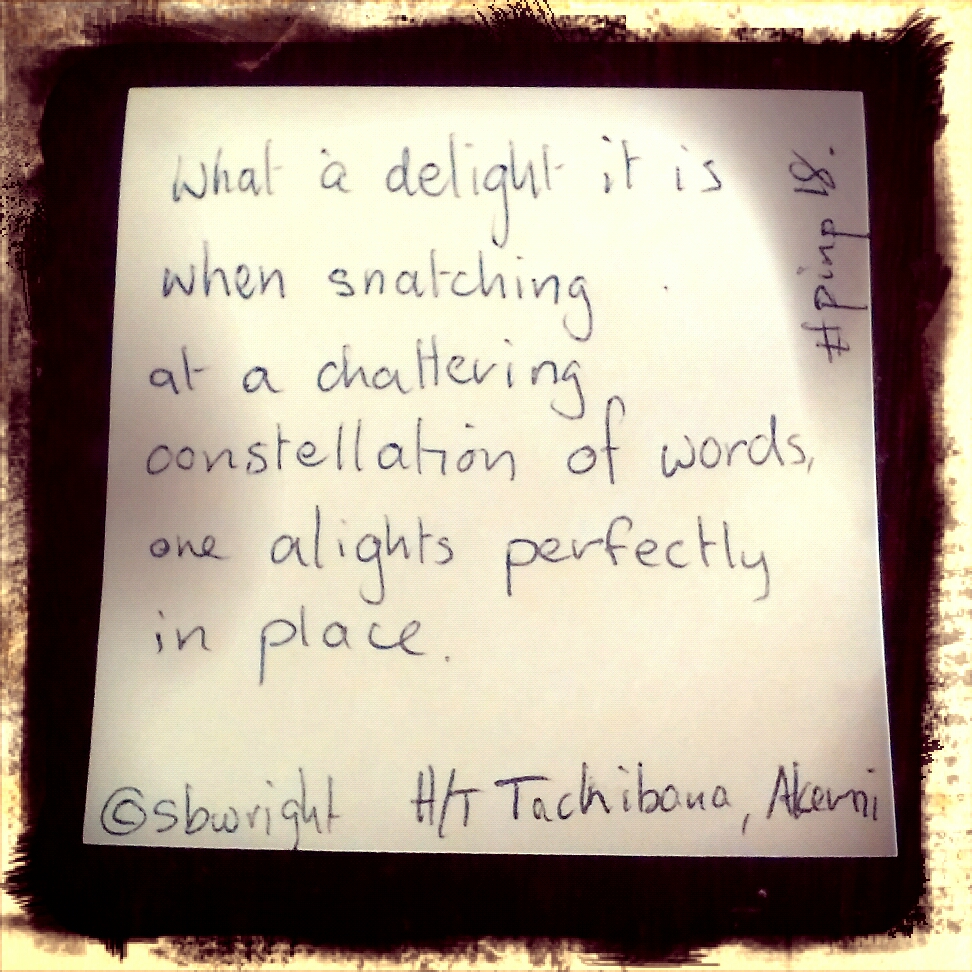 What a delight it is
when snatching
at a chattering
constellation of words,
one alights perfectly
in place.
©sbwright H/T Tachibana, Akemi
#pinp 18.